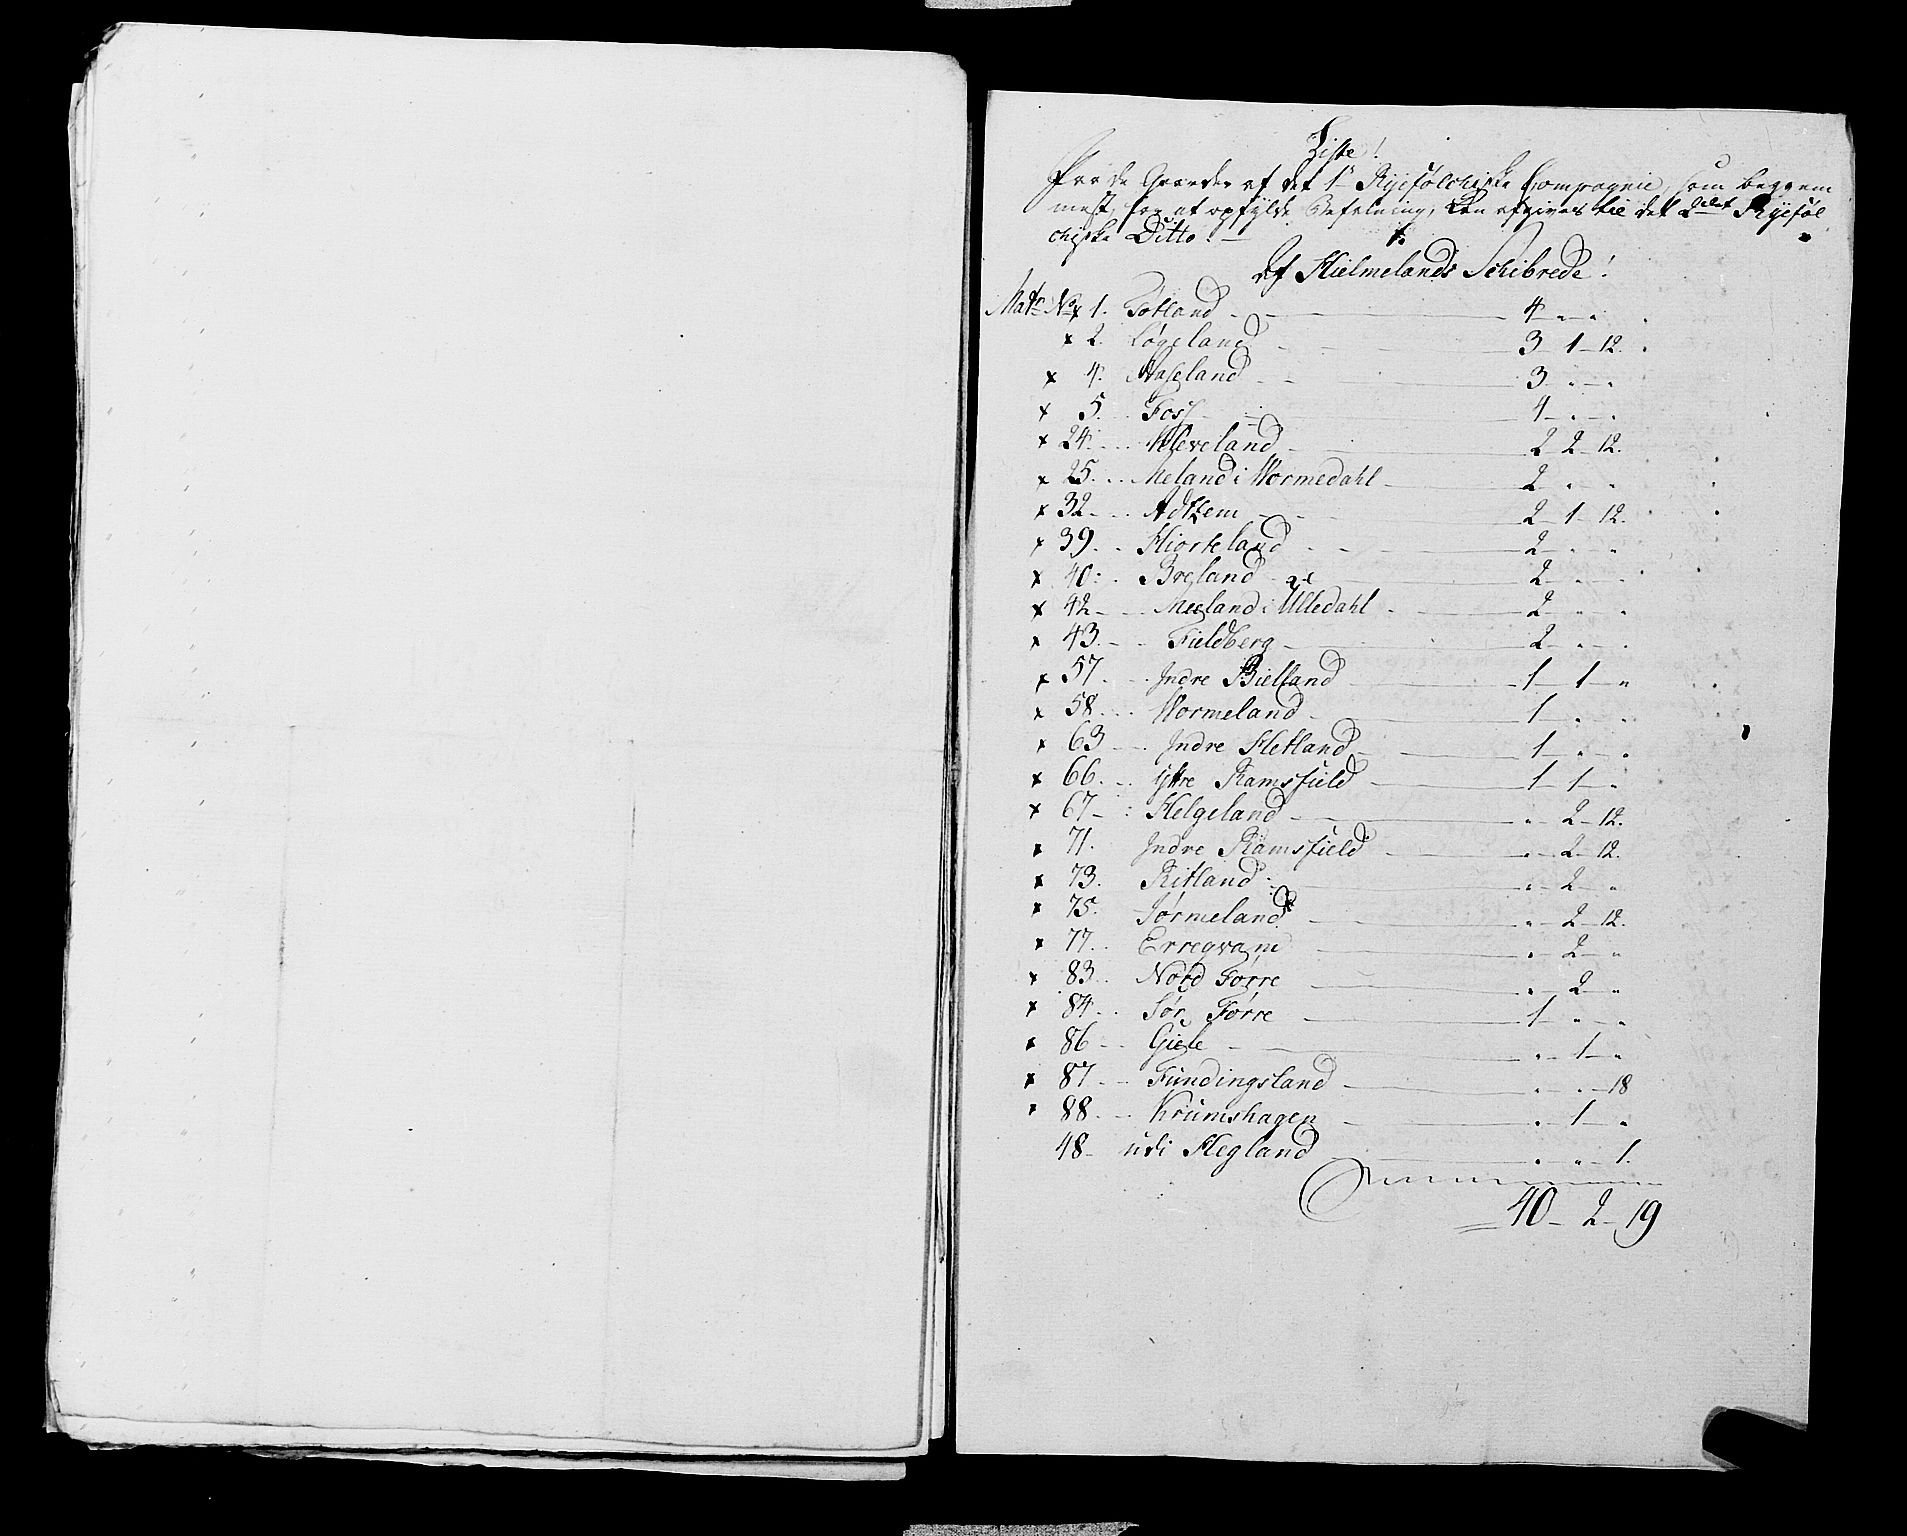 Liste!
Paa de Gaarder af det 1ste Ryefølchiske Compagnie, som beqvem
mest, for at opfylde Befalning, kan afgives til det 2det Ryeføl
chiske Ditto. —
Af Hielmelands Schibrede!
Matr No x 1. Tøtland — 4 — " — "
x 2. Løgeland — 3 — 1 — 12.
x 4. Waseland — 3 — " — "
x 5. Foss — 4 — " — "
x 24. Kleveland — 2 2 — 12.
x 25. Meland i Wormedahl — 2 " "
x 32 Adtzem — 2 — 1 — 12.
x 39. Hiorteland — 2 — " — "
x 40. Bregland — 2 — " — "
x 42 Meeland i Ulledahl — 2 — " — "
x 43. Fieldberg — 2 — " — "
x 57 Indre Bielland — 1 1 — "
x 58 Wormeland — 1 " "
x 63 Indre Hetland — 1 — " — "
x 66. Yttre Ramsfield — 1 — 1 — "
x 67 Helgeland — " — 2 — 12.
x 71. Indre Ramsfield — " — 2 — 12.
x 73. Ritland — " — 2 — "
x 75. Sørmeland — " — 2 — 12.
x 77. Erregvam — " — 2 — "
x 83. Nord Førre — " — 2 — "
x 84. Sør Førre — 1 " — "
x 86 Giele — " — 1 — "
x 87 Fundingsland — " — " — 18
x 88. Krumshagen — " — 1 — "
48 udi Hegland — " — " — 1.
40 — 2 — 19